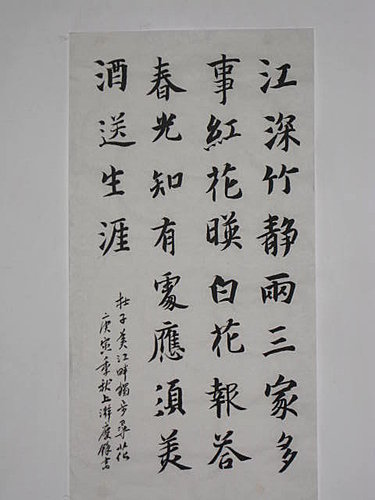 江深竹靜兩三家多
事紅花暎白花報荅
春光知有處應須美
酒送生涯
杜子美江畔獨步尋花
庚寅季秋上澣書